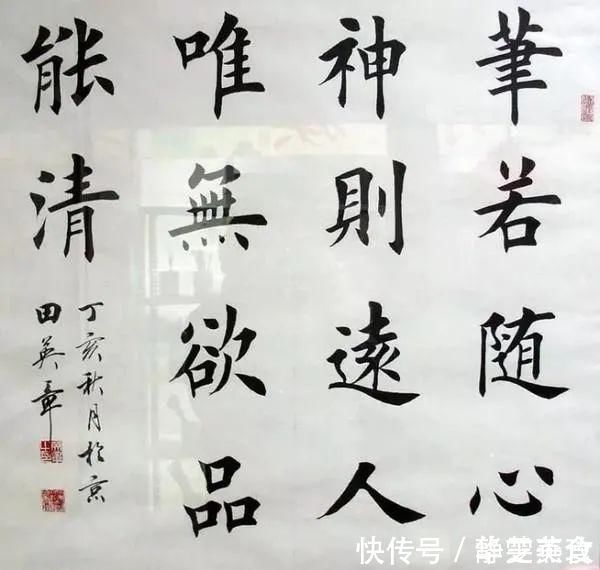 筆若随心
神則遠人
唯無欲品
能清
丁亥秋月於京
田英章
快传号 /